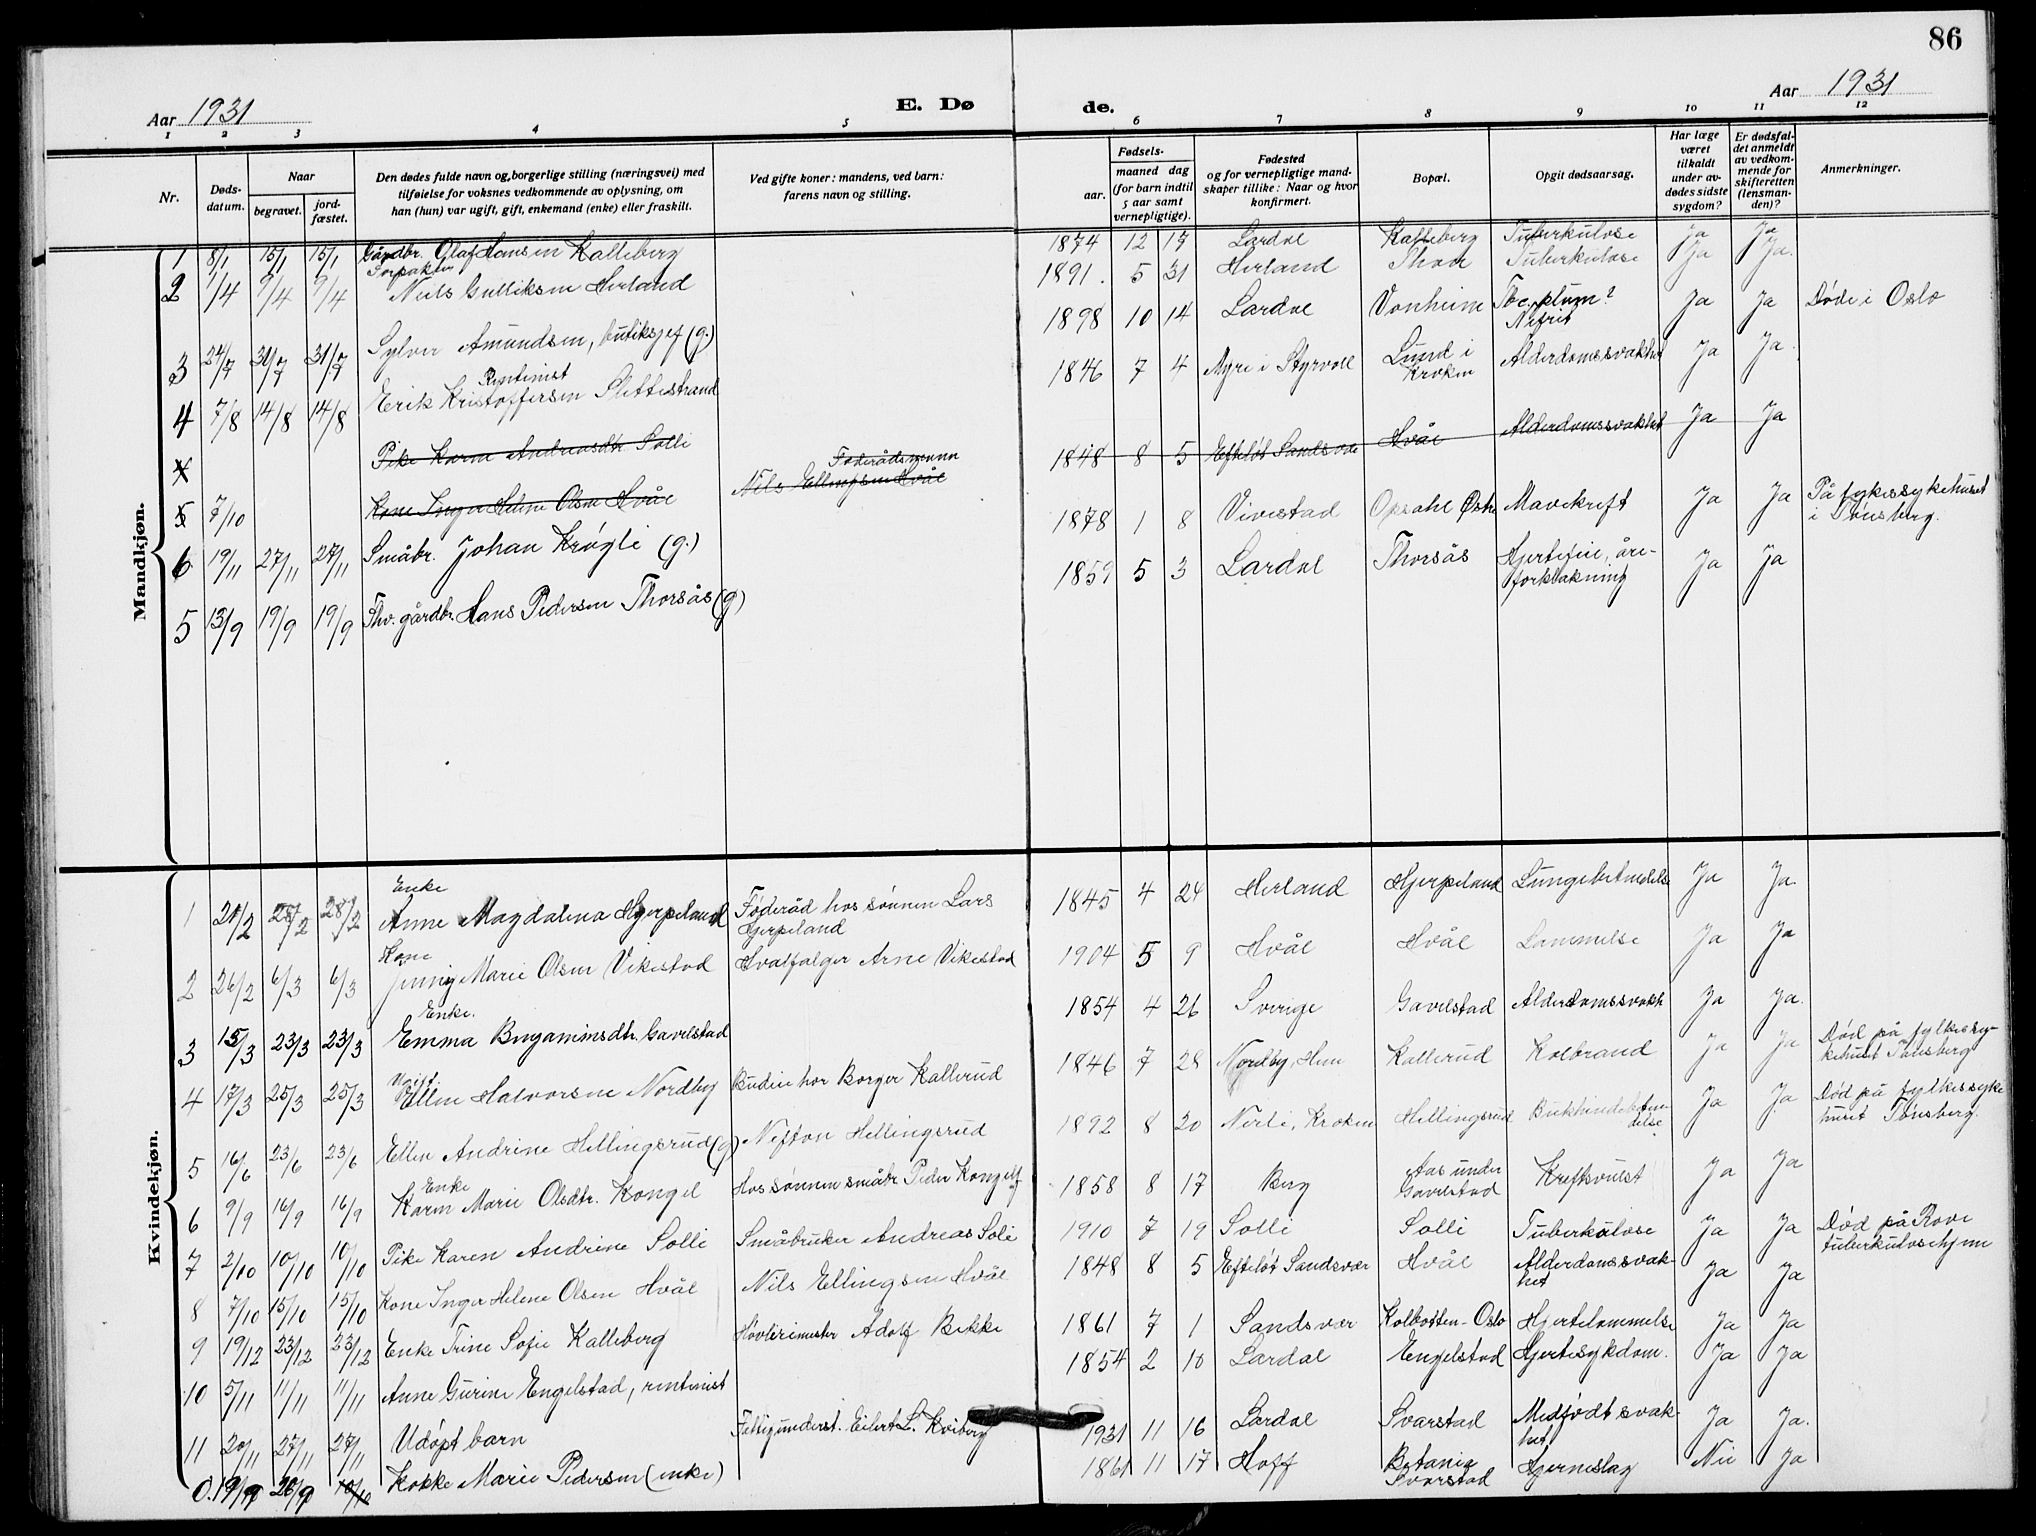 86
Aar 1931
E. Dø de.
Aar 1931
1 2 3 4 5 6 7 8 9 10 11 12
Nr.
Døds-
datum.
Naar
begravet.
jord-
fæstet.
Den dødes fulde navn og borgerlige stilling (næringsvei) med
tilføielse for voksnes vedkommende av oplysning, om
han (hun) var ugift, gift, enkemand (enke) eller fraskilt.
Ved gifte koner: mandens, ved barn:
farens navn og stilling.
Fødsels-
aar.
maaned dag
(for barn indtil
5 aar samt
vernepligtige).
Fødested
og for vernepligtige mand-
skaper tillike: Naar og hvor
konfirmert.
Bopæl.
Opgit dødsaarsag.
Har læge
været
tilkaldt
under av-
dødes sidste
sygdom?
Er dødsfal-
det anmeldt
av vedkom-
mende for
skifteretten
(lensman-
den)?
Anmerkninger.
Mandkjøn.
1 8/1 15/1 15/1 Gårdbr. Olaf Hansen Kalleberg 1874 12 17 Lardal Kalleberg Tuberkulose Ja Ja
Forpakter
2 1/4 9/4 9/4 Neils Gulliksen Herland 1891. 5 31 Herland Thor Tuberkulose Ja Ja.
3 24/7 31/7 31/7 Sylver Amundsen, butiksjef (g.) 1898 10 14 Lardal Vonheim Tbc. plum? Nefrit Ja Ja Døde i Oslo
Rentenist
4 7/8 14/8 14/8 Erik Kristoffersen Slettestrand 1846 7 4 Myre i Styrvoll Lund i Kroken Alderdomssvakhet Ja Ja.
Pike Karen Andreasdtr Solli
Føderådsmann
5 7/10 Kone Inger Helene Olsen Hvål Nils Ellingsen Hvål 1848 8 5 Efteløt Sandsvær Hvål Alderdomssvakhet Ja Ja
6 19/11 27/11 27/11 Småbr. Johan Krøgli (g.) 1878 1 8 Vivestad Opsahl Østre Mavekreft Ja Ja På fylkessykehuset
i Tønsberg.
5 13/9 19/9 19/9 Fhv. gårdbr. Hans Pedersen Thorsås (g) 1859 5 3 Lardal Thorsås Hjertefeil, åre-
forkalkning Ja Ja
Kvindekjøn.
Enke
1 21/2 28/2 28/2 Anne Magdalena Hjerpeland Føderåd hos sønnen Lars
Hjerpeland 1845 4 24 Herland Hjerpeland Lungebetendelse Ja Ja.
Kone
2 26/2 6/3 6/3 Jenny Marie Olsen Vikestad Hvalfanger Arne Vikestad 1904 5 9 Hvål Hvål Lammelse Ja Ja
Enke.
3 15/3 23/3 23/3 Emma Bengaminsdtr. Gavelstad 1854 4 26 Sverige Gavelstad Alderdomssvakh Ja Ja.
Ugift
4 17/3 25/3 25/3 Ellen Halvorsen Nordby Budeie hos Borger Kallerud 1846 7 28 Nordby, Hem Kallerud Kolbrand Ja Ja Død på fylkessy-
kehuset Tønsberg
5 16/6 23/6 23/6 Ellen Andrine Hellingsrud (g) Nefton Hellingsrud 1892 8 20 Nerli, Kroken Hellingsrud Bukhindebeten-
delse. Ja Ja Død på fylkessyke
huset Tønsberg.
Enke
6 9/9 16/9 16/9 Karen Marie Olsdtr. Kongel Hos sønnen småbr. Peder Kongelf 1858 8 17 Berg Aas under
Gavelstad Kreftsvulst Ja Ja
7 2/10 10/10 10/10 Pike Karen Andrine Solli Småbruker Andreas Soli 1910 7 19 Solli Solli Tuberkulose Ja Ja Død på Rove
tuberkulosehjem
8 7/10 15/10 15/10 Kone Inger Helene Olsen Hvål Nils Ellingsen Hvål 1848 8 5 Efteløt Sandsvær Hvål Alderdomssvak-
het Ja Ja
9 19/12 23/12 23/12 Enke Trine Sofie Kalleberg Høvlerimester Adolf Bekke 1861 7 1 Sandsvær Kolbotten - Oslo Hjertelammelse Ja Ja
10 5/11 11/11 11/11 Anne Gurine Engelstad, rentenist 1854 2 10 Lardal Engelstad Hjertesykdom. Ja Ja
11 20/11 27/11 27/11 Udøpt barn Fattigunderst. Eilert L. Kviberg 1931 11 16 Lardal Svarstad Medfødt svak-
het Ja Ja.
0. 19/9 26/9 10/10 Kokke Marie Pedersen (enke) 1861 11 17 Hoff Betania
Svarstad Hjerneslag Nei Ja